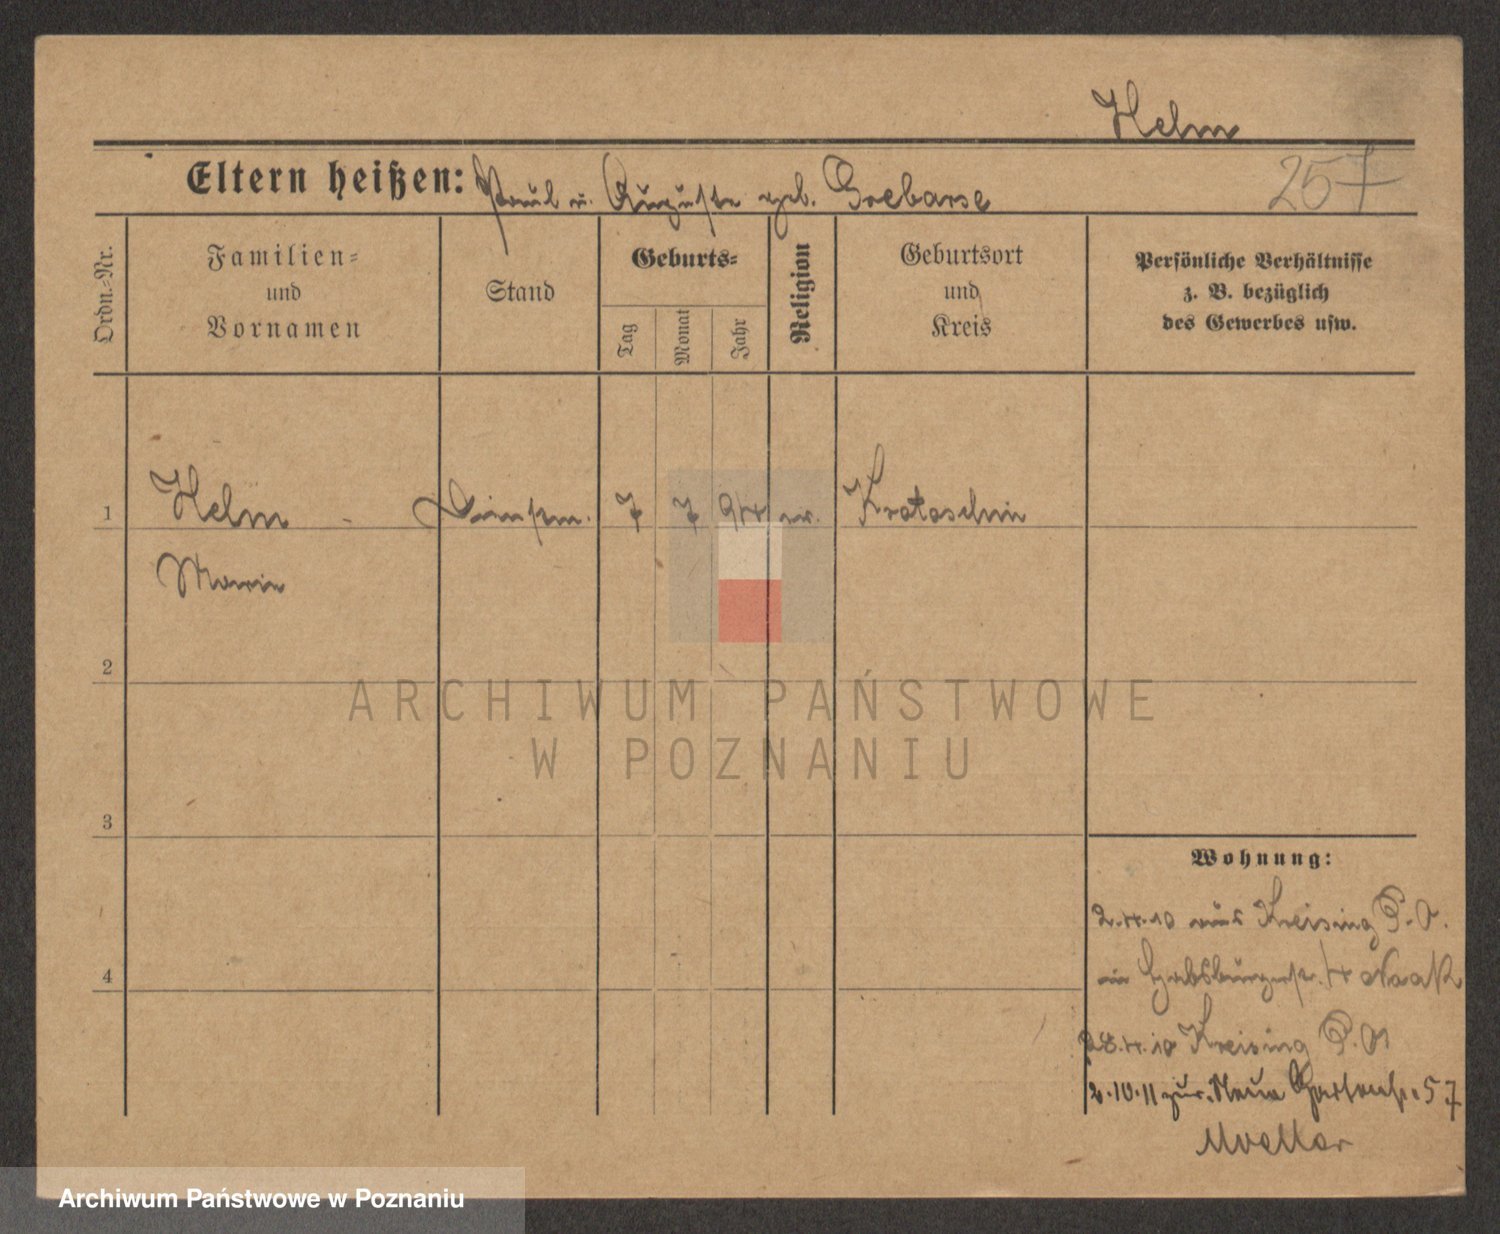 Helm
257
Eltern heißen: Paul u. Auguste geb. Grebarse
Ordn.-Nr.
Familien-
und
Vornamen
Stand
Geburts-
Tag
Monat
Jahr
Religion
Geburtsort
und
Kreis
Persönliche Verhältnisse
z. B. bezüglich
des Gewerbes usw.
1 Helm Dienstm. 7 7 94 ev. Krotoschin
Marie
2
3
4
Wohnung:
2.4.10 aus Kreising P. O.
in Habsburgerstr. 4 Noak
28.4.10 Kreising P. O.
2.10.11 zur. Neue Gartenstr. 57
ARCHIWUM PAŃSTWOWE
W POZNANIU
Archiwum Państwowe w Poznaniu